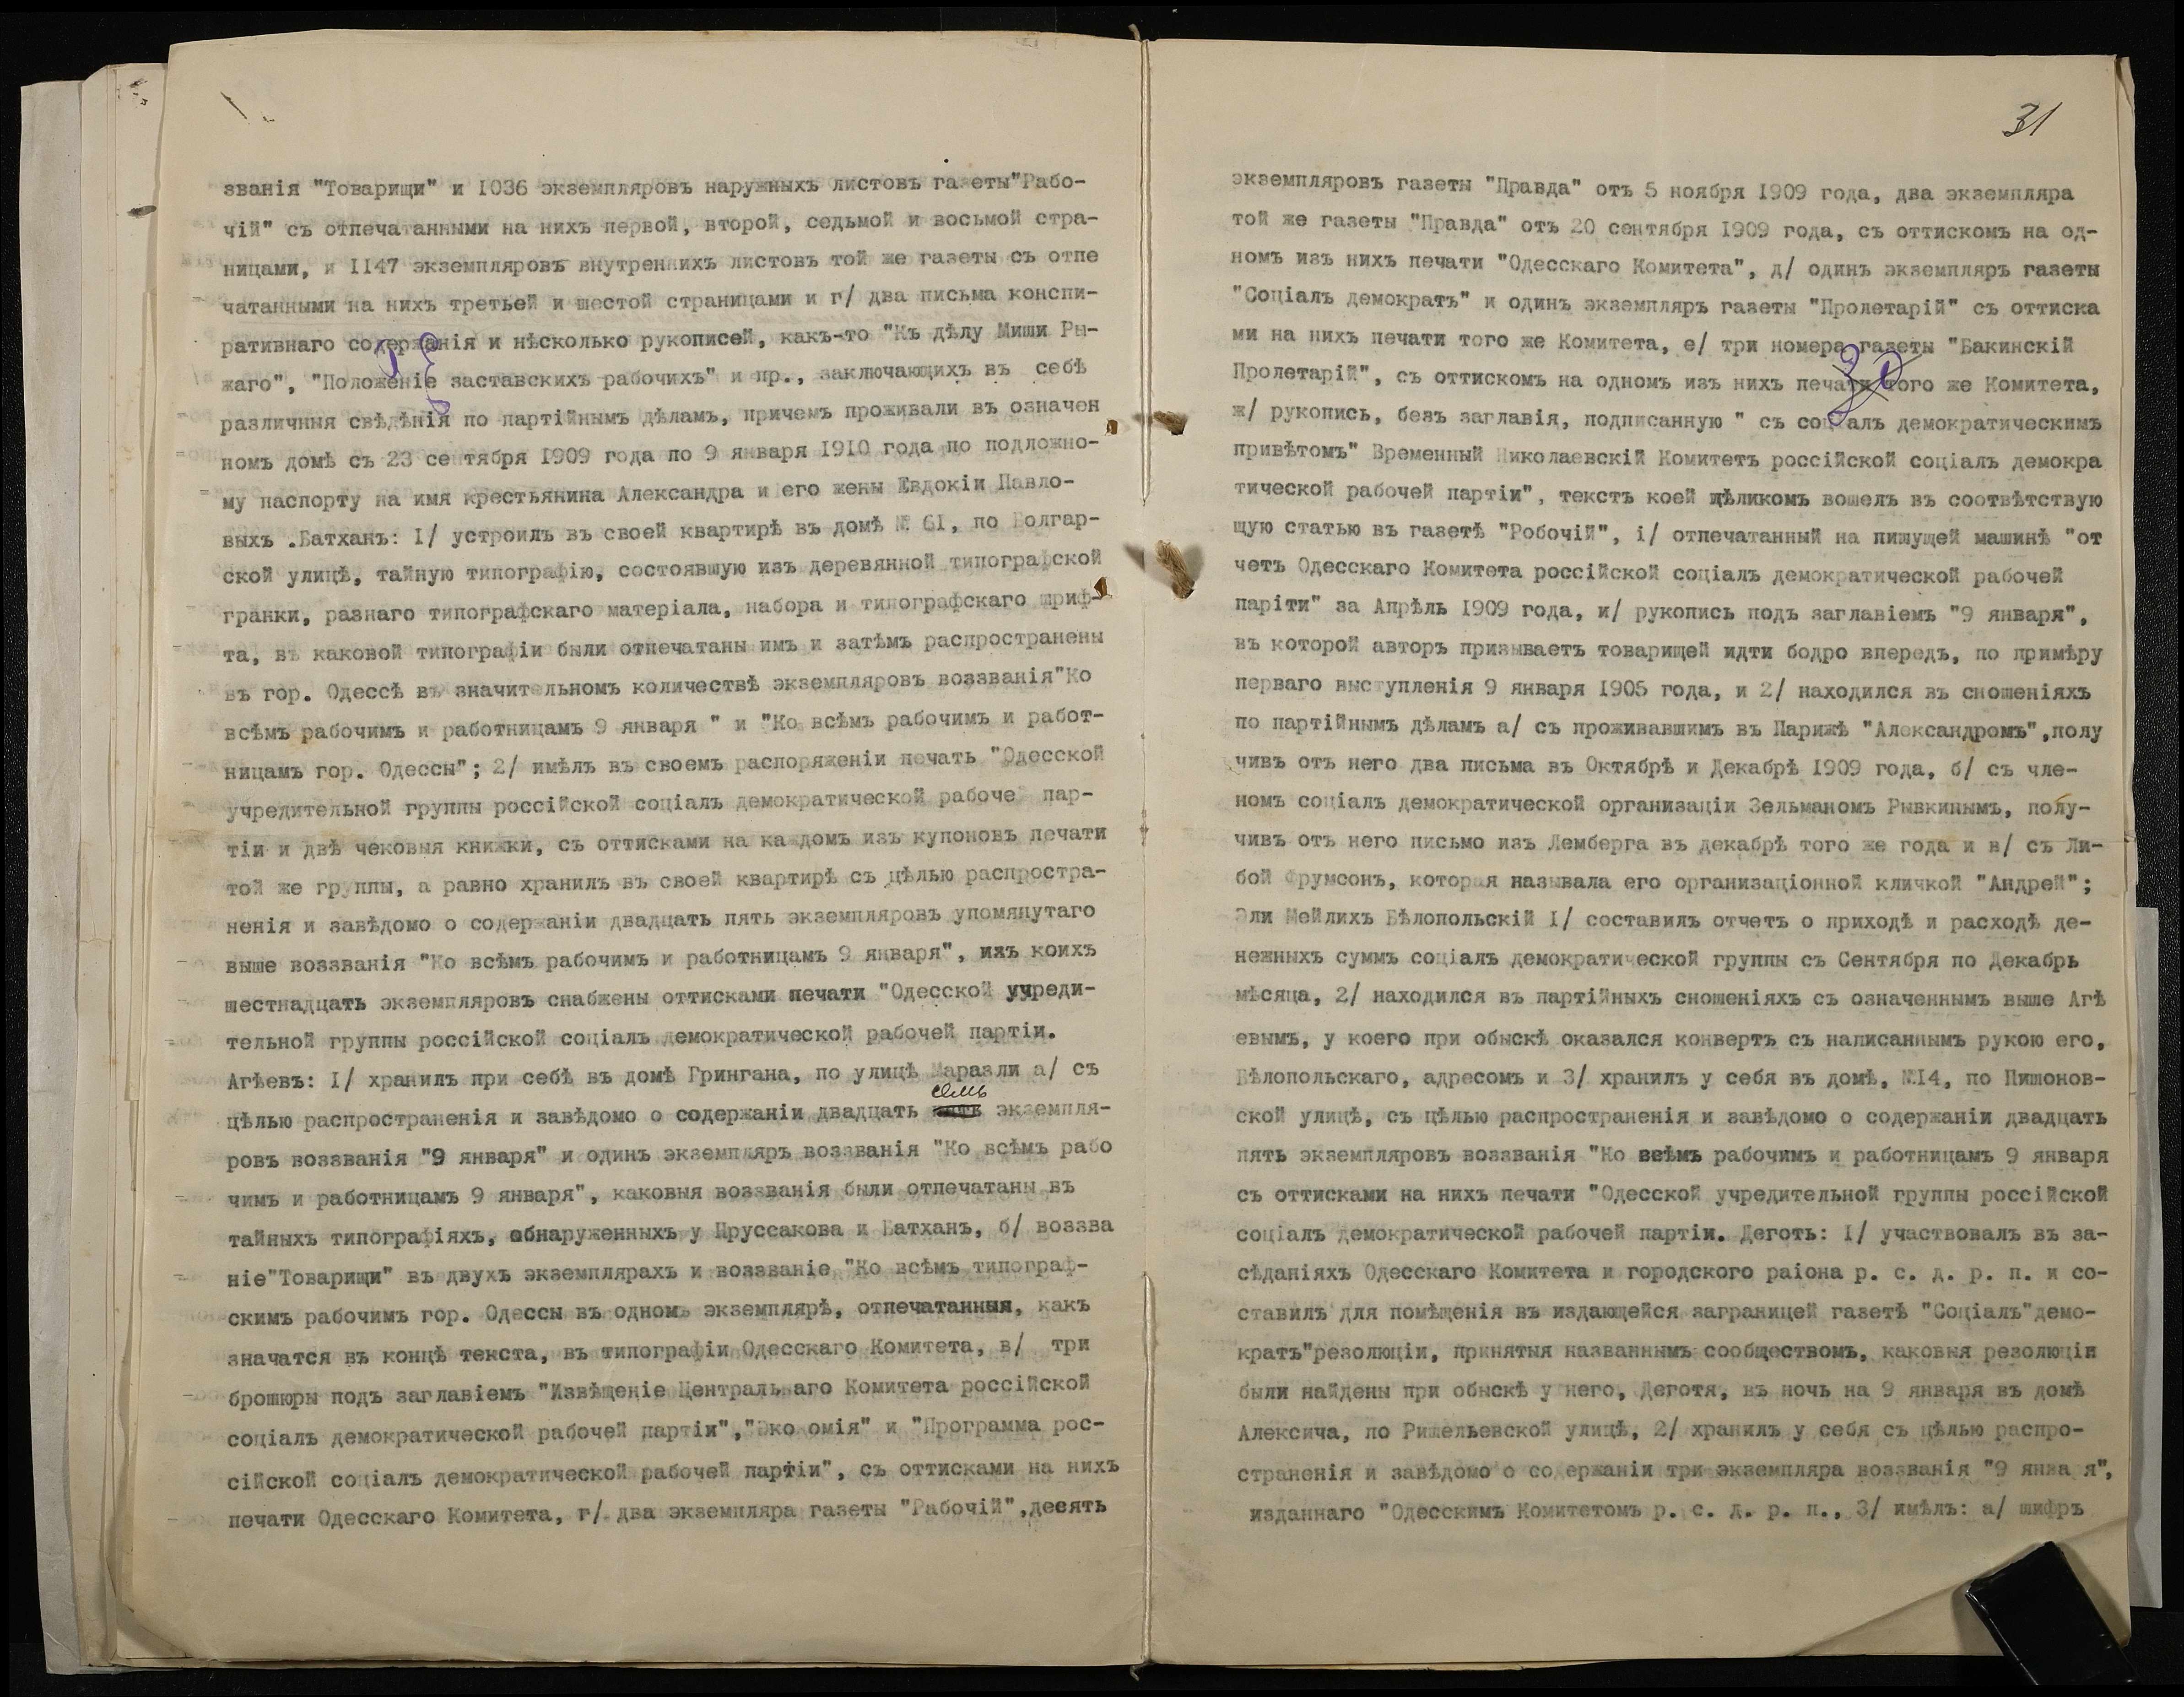 званія "Товарищи" и 1036 экземпляровъ наружныхъ листовъ газеты"Рабо-
чій" съ отпечатанными на нихъ первой, второй, седьмой и восьмой стра-
ницами, и 1147 экземпляровъ внутреннихъ листовъ той же газеты съ отпе
чатанными на нихъ третьей и шестой страницами и г/ два письма конспи-
ративнаго содержанія и нѣсколько рукописей, какъ-то "Къ дѣлу Миши Ры-
жаго", "Положеніе заставскихъ рабочихъ" и пр., заключающихъ въ себѣ
различныя свѣдѣнія по партійнымъ дѣламъ, причемъ проживали въ означен
номъ домѣ съ 23 сентября 1909 года по 9 января 1910 года по подложно-
му паспорту на имя крестьянина Александра и его жены Евдокіи Павло-
выхъ .Батханъ: I/ устроилъ въ своей квартирѣ въ домѣ № 61, по Болгар-
ской улицѣ, тайную типографію, состоявшую изъ деревянной типографской
гранки, разнаго типографскаго матеріала, набора и типографскаго шриф-
та, въ каковой типографіи были отпечатаны имъ и затѣмъ распространены
въ гор. Одессѣ въ значительномъ количествѣ экземпляровъ воззванія"Ко
всѣмъ рабочимъ и работницамъ 9 января " и "Ко всѣмъ рабочимъ и работ-
ницамъ гор. Одессы"; 2/ имѣлъ въ своемъ распоряженіи печать "Одесской
учредительной группы россійской соціалъ демократической рабочей пар-
тіи и двѣ чековыя книжки, съ оттисками на каждомъ изъ купоновъ печати
той же группы, а равно хранилъ въ своей квартирѣ съ цѣлью распростра-
ненія и завѣдомо о содержаніи двадцать пять экземпляровъ упомянутаго
выше воззванія "Ко всѣмъ рабочимъ и работницамъ 9 января", ихъ коихъ
шестнадцать экземпляровъ снабжены оттисками печати "Одесской учреди-
тельной группы россійской соціалъ демократической рабочей партіи.
Агѣевъ: I/ хранилъ при себѣ въ домѣ Грингана, по улицѣ Маразли а/ съ
цѣлью распространенія и завѣдомо о содержаніи двадцать семь экземпля-
ровъ воззванія "9 января" и одинъ экземпляръ воззванія "Ко всѣмъ рабо
чимъ и работницамъ 9 января", каковыя воззванія были отпечатаны въ
тайныхъ типографіяхъ, обнаруженныхъ у Пруссакова и Батханъ, б/ воззва
ніе"Товарищи" въ двухъ экземплярахъ и воззваніе "Ко всѣмъ типограф-
скимъ рабочимъ гор. Одессы въ одномъ экземплярѣ, отпечатанныя, какъ
значатся въ концѣ текста, въ типографіи Одесскаго Комитета, в/ три
брошюры подъ заглавіемъ "Извѣщеніе Центральнаго Комитета россійской
соціалъ демократической рабочей партіи","Экономія" и "Программа рос-
сійской соціалъ демократической рабочей партіи", съ оттисками на нихъ
печати Одесскаго Комитета, г/ два экземпляра газеты "Рабочій",десять
31
экземпляровъ газеты "Правда" отъ 5 ноября 1909 года, два экземпляра
той же газеты "Правда" отъ 20 сентября 1909 года, съ оттискомъ на од-
номъ изъ нихъ печати "Одесскаго Комитета", д/ одинъ экземпляръ газеты
"Соціалъ демократъ" и одинъ экземпляръ газеты "Пролетарій" съ оттиска
ми на нихъ печати того же Комитета, е/ три номера газеты "Бакинскій
Пролетарій", съ оттискомъ на одномъ изъ нихъ печати того же Комитета,
ж/ рукопись, безъ заглавія, подписанную " съ соціалъ демократическимъ
привѣтомъ" Временный Николаевскій Комитетъ россійской соціалъ демокра
тической рабочей партіи", текстъ коей цѣликомъ вошелъ въ соотвѣтствую
щую статью въ газетѣ "Робочій", і/ отпечатанный на пишущей машинѣ "от
четъ Одесскаго Комитета россійской соціалъ демократической рабочей
паріти" за Апрѣль 1909 года, и/ рукопись подъ заглавіемъ "9 января",
въ которой авторъ призываетъ товарищей идти бодро впередъ, по примѣру
перваго выступленія 9 января 1905 года, и 2/ находился въ сношеніяхъ
по партійнымъ дѣламъ а/ съ проживавшимъ въ Парижѣ "Александромъ",полу
чивъ отъ него два письма въ Октябрѣ и Декабрѣ 1909 года, б/ съ чле-
номъ соціалъ демократической организаціи Зельманомъ Рывкинымъ, полу-
чивъ отъ него письмо изъ Лемберга въ декабрѣ того же года и в/ съ Ли-
бой Фрумсонъ, которая называла его организаціонной кличкой "Андрей";
Эли Мейлихъ Бѣлопольскій I/ составилъ отчетъ о приходѣ и расходѣ де-
нежныхъ суммъ соціалъ демократической группы съ Сентября по Декабрь
мѣсяца, 2/ находился въ партійныхъ сношеніяхъ съ означеннымъ выше Агѣ
евымъ, у коего при обыскѣ оказался конвертъ съ написаннымъ рукою его,
Бѣлопольскаго, адресомъ и 3/ хранилъ у себя въ домѣ, №14, по Пишонов-
ской улицѣ, съ цѣлью распространенія и завѣдомо о содержаніи двадцать
пять экземпляровъ воззванія "Ко всѣмъ рабочимъ и работницамъ 9 января
съ оттисками на нихъ печати "Одесской учредительной группы россійской
соціалъ демократической рабочей партіи. Деготь: I/ участвовалъ въ за-
сѣданіяхъ Одесскаго Комитета и городского раіона р. с. д. р. п. и со-
ставилъ для помѣщенія въ издающейся заграницей газетѣ "Соціалъ"демо-
кратъ"резолюціи, принятыя названнымъ сообществомъ, каковыя резолюціи
были найдены при обыскѣ у него, Деготя, въ ночь на 9 января въ домѣ
Алексича, по Ришельевской улицѣ, 2/ хранилъ у себя съ цѣлью распро-
страненія и завѣдомо о содержаніи три экземпляра воззванія "9 января",
изданнаго "Одесскимъ Комитетомъ р. с. д. р. п., 3/ имѣлъ: а/ шифръ